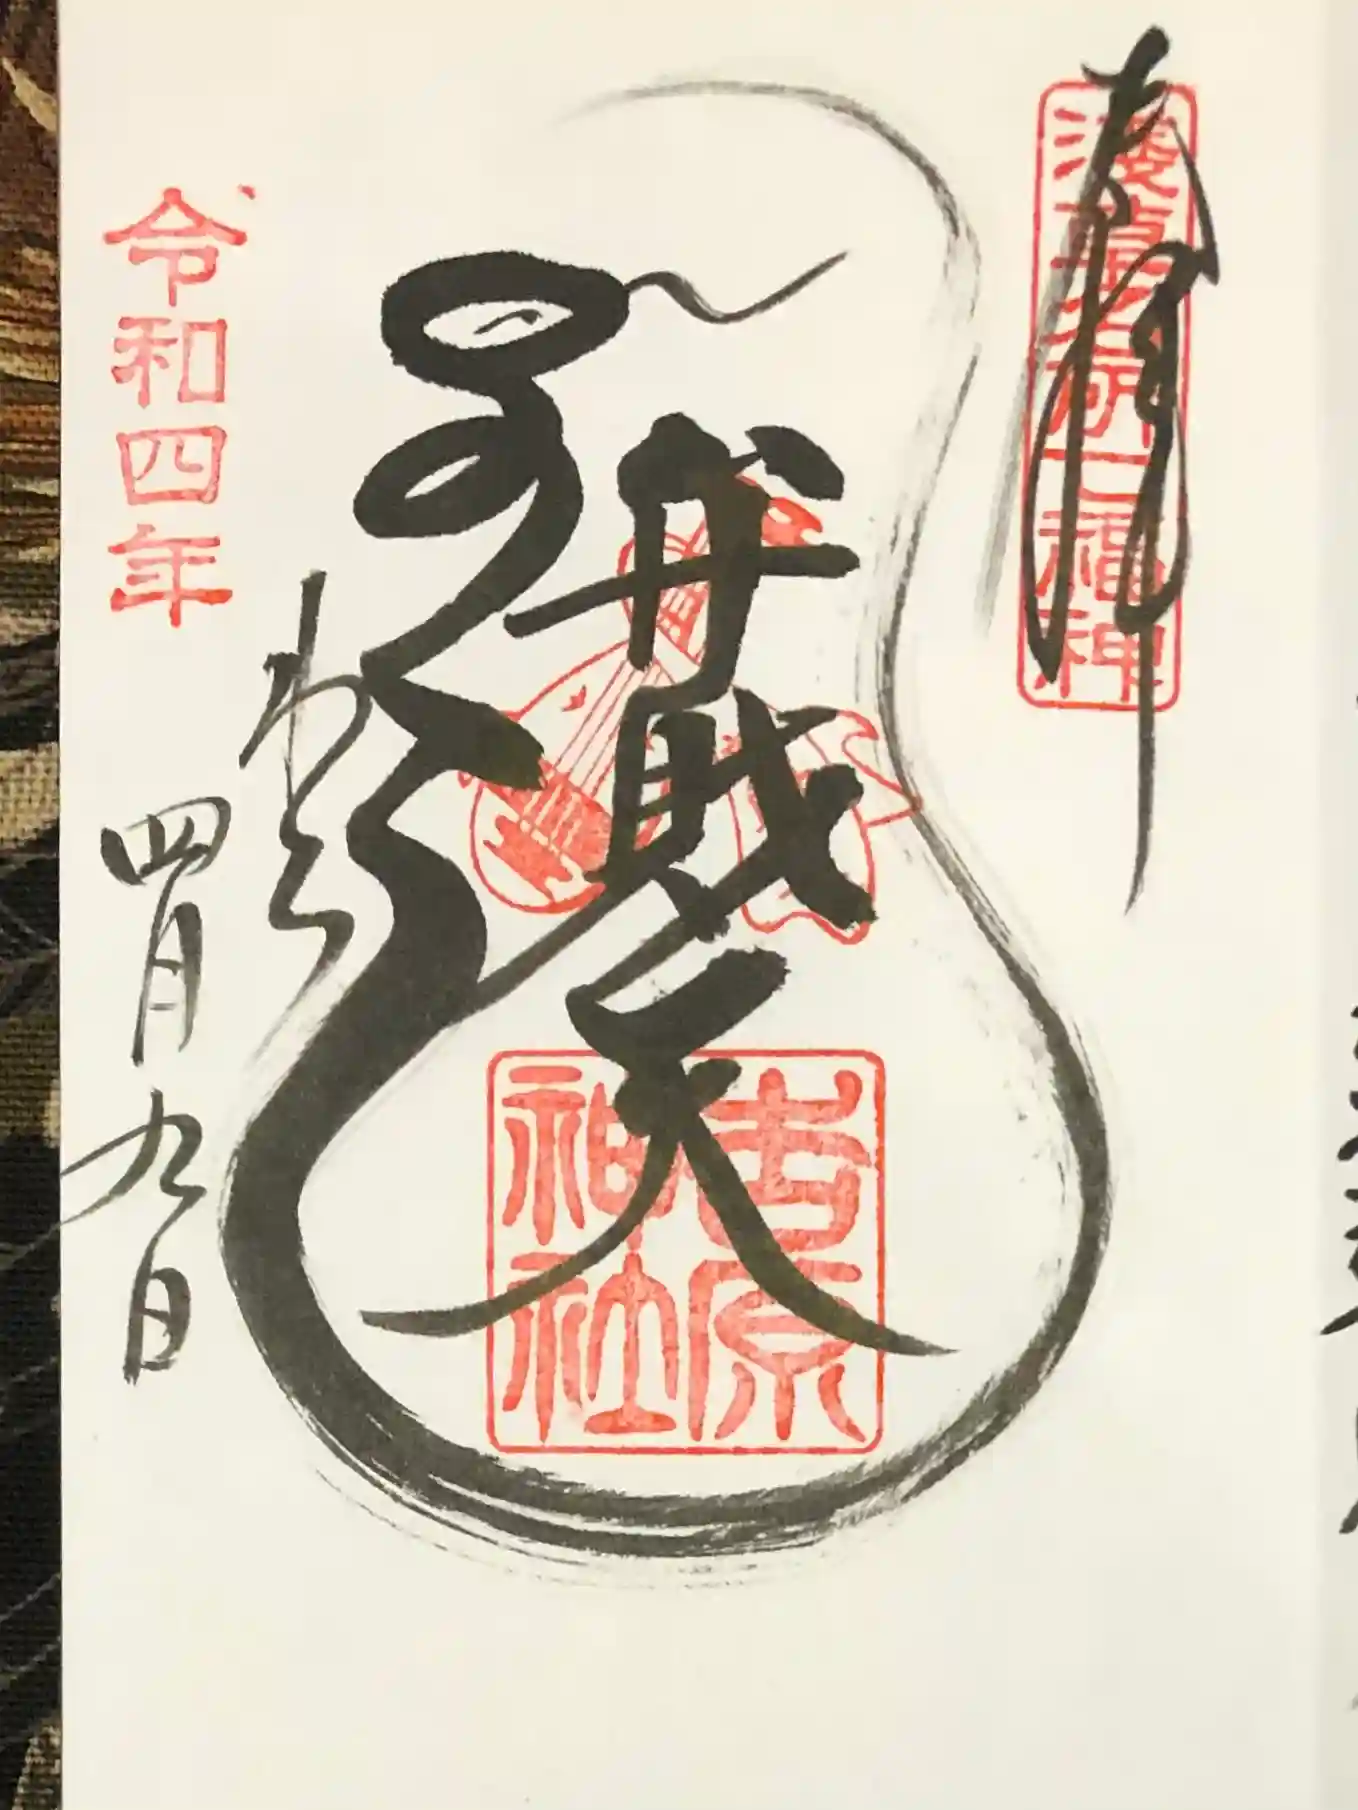 奉拝
淺草名所七福神
弁財天
吉原
神社
令和四年
四月九日